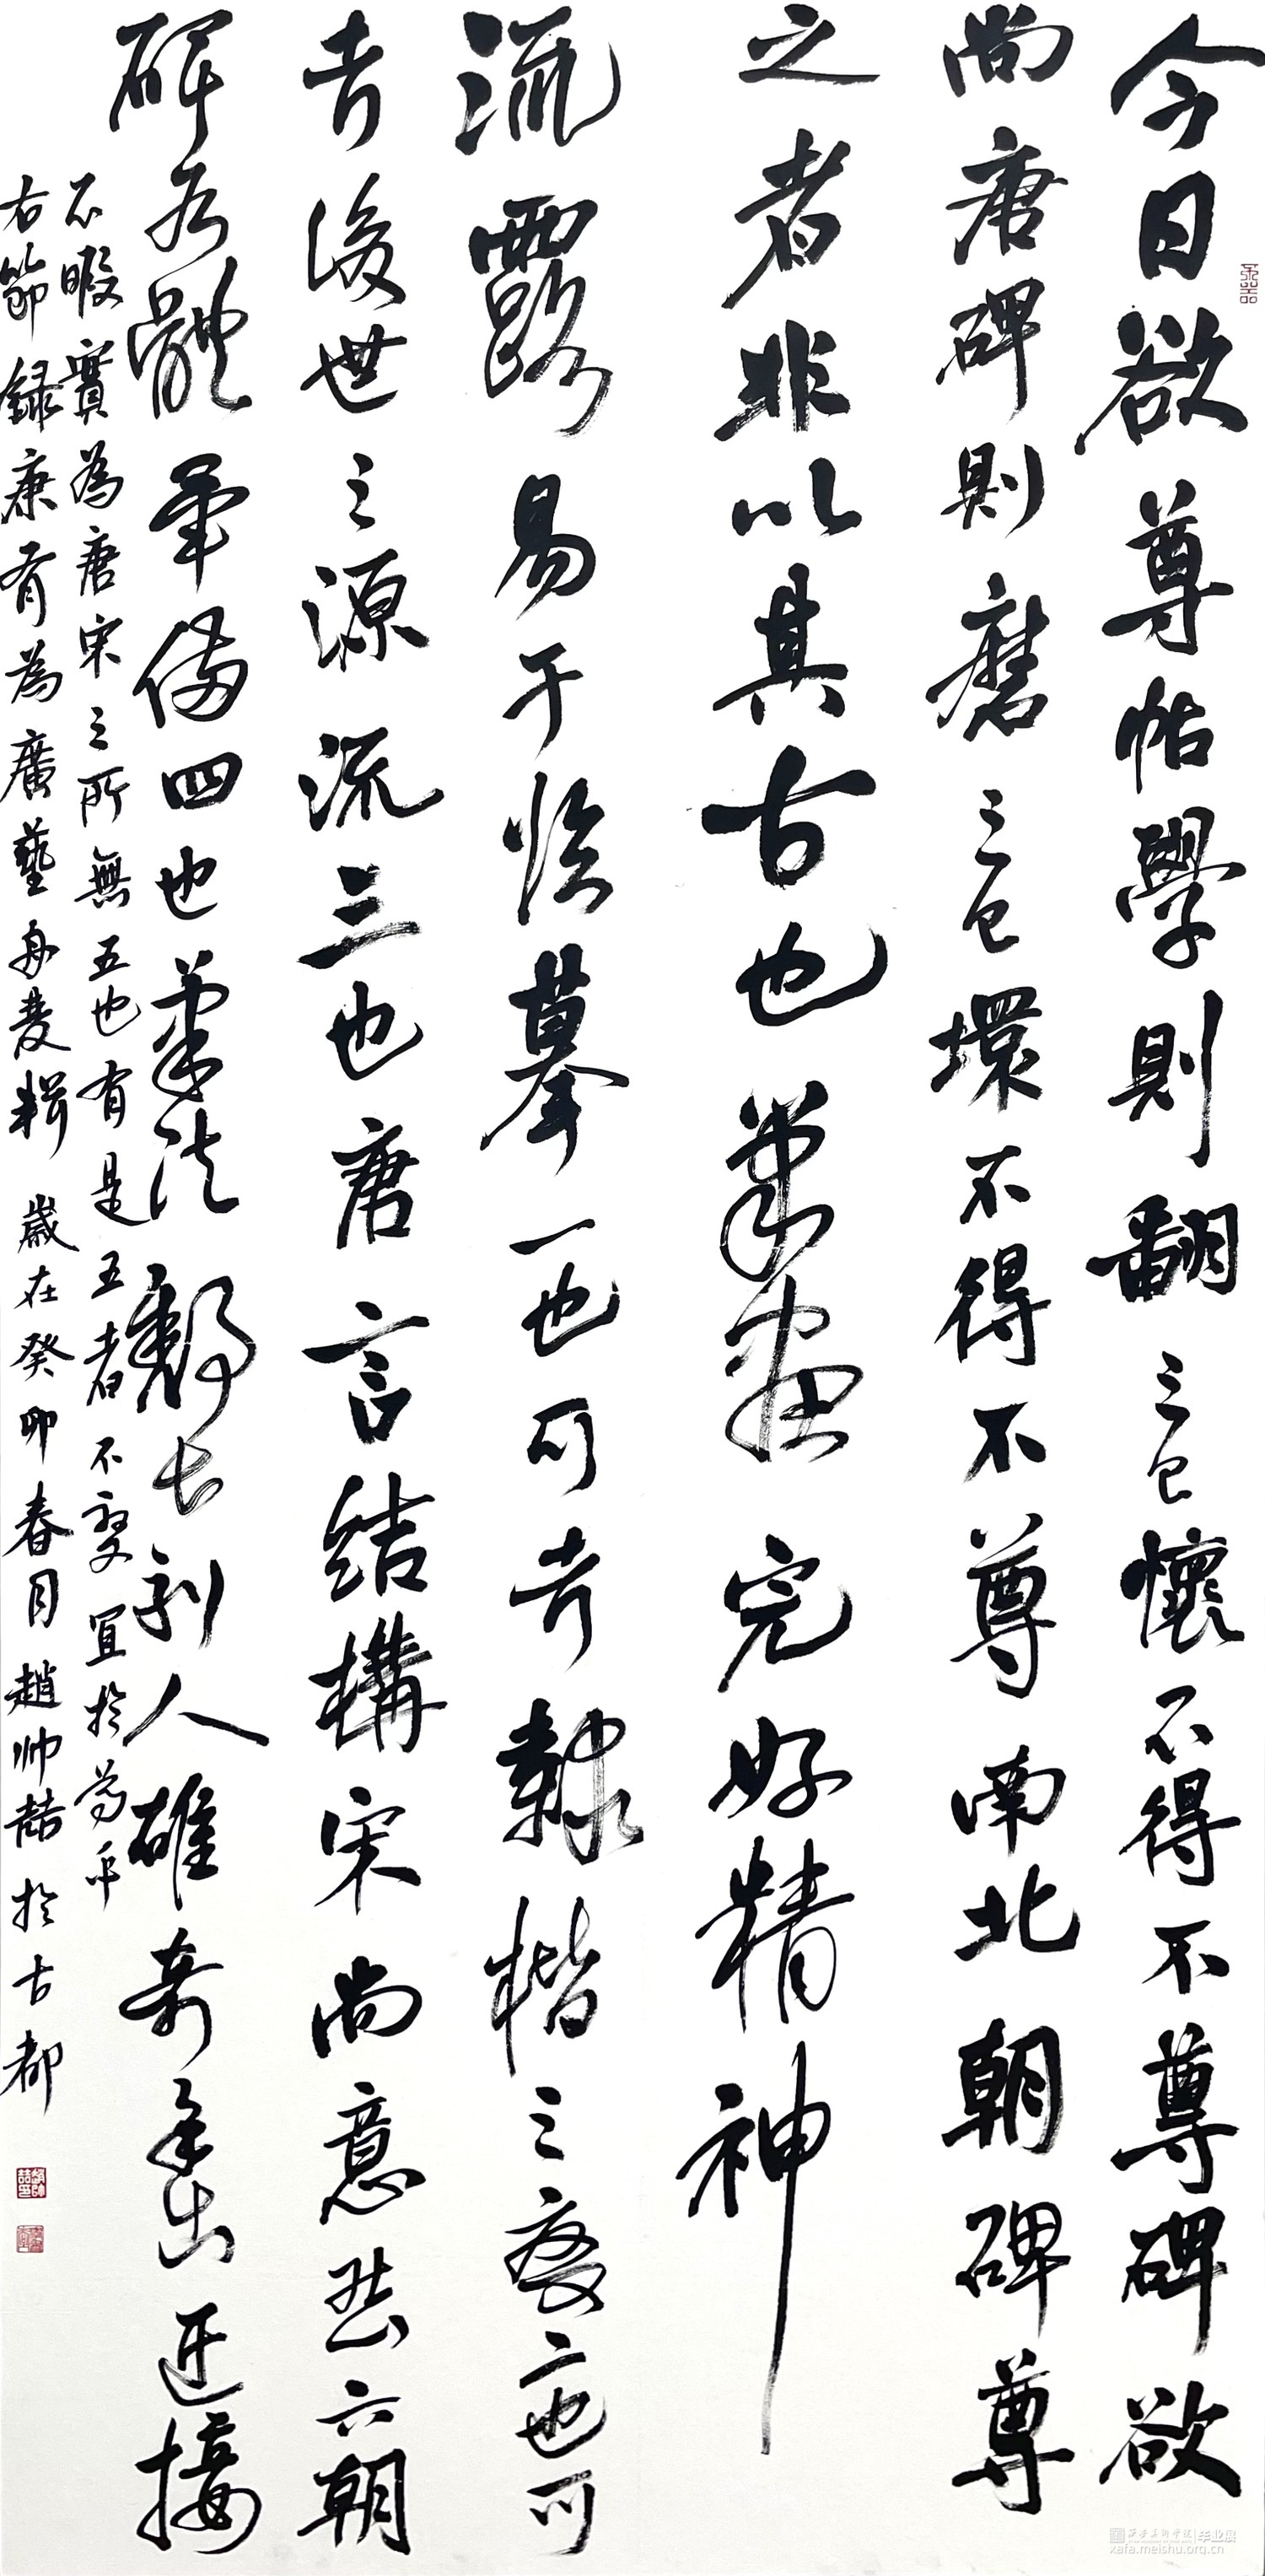 今日欲尊帖學則翻之已懷不得不尊碑欲
尚唐碑則磨之已環不得不尊南北朝碑尊
之者非以其古也筆畫完好精神
流露易于臨摹一也可考隸楷之變二也可
考後世之源流三也唐言結構宋尚意態六朝
碑各體畢備四也筆法舒長刻人雄奇角出迎接
不暇實為唐宋之所無五也有是五者不亟宜於尊乎
右節録康有為廣藝舟雙楫 歲在癸卯春月趙帅喆於古都
西安美术学院 毕业展
xafa.meishu.org.cn